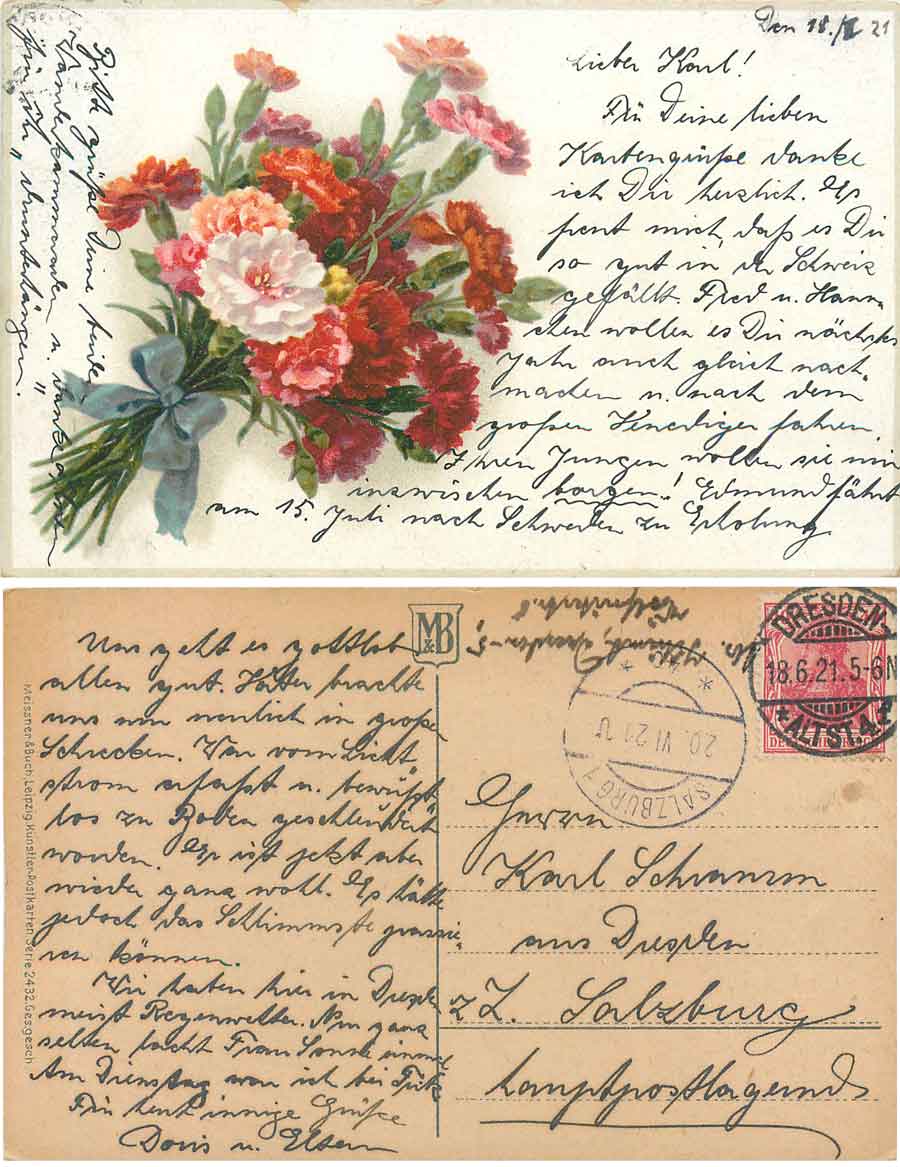 Den 18./6. 21
Lieber Karl!
Für Deine lieben
Kartengrüße danke
ich Dir herzlich. Es
freut mich, daß es Dir
so gut in der Schweiz
gefällt. Fred u. Hann-
chen wollen es Dir nächstes
Jahr auch gleich nach-
machen u. nach dem
großen Venediger fahren.
Ihren Jungen wollen sie mir
inzwischen borgen! Edmund fährt
am 15. Juli nach Schweden zu Erholung
Bitte grüße Deine beiden
Wanderkammraden u. danke
für ihr "drunterhängen."
Uns geht es gottlob
allen gut. Vater brachte
uns nur neulich in große
Schrecken. War vom Licht
strom erfaßt u. bewußt
los zu Boden geschleudert
worden. Er ist jetzt aber
wieder ganz wohl. Es hätte
jedoch das Schlimmste passie-
ren können.
Wir haben hier in Dresden
meist Regenwetter. Nur ganz
selten lacht Frau Sonne einmal
Am Dienstag war ich bei
Für heut innige Grüße
Doris u. Eltern
M&B
Meissner & Buch, Leipzig, Künstler-Postkarten Serie 2432. Ges. gesch.
Dresden-
DRESDEN-
18.6.21. 5-6N
*ALTST.
20. VI 21
SALZBURG 1
Herrn
Karl Schramm
aus Dresden
z Z. Salzburg
hauptpostlagernd